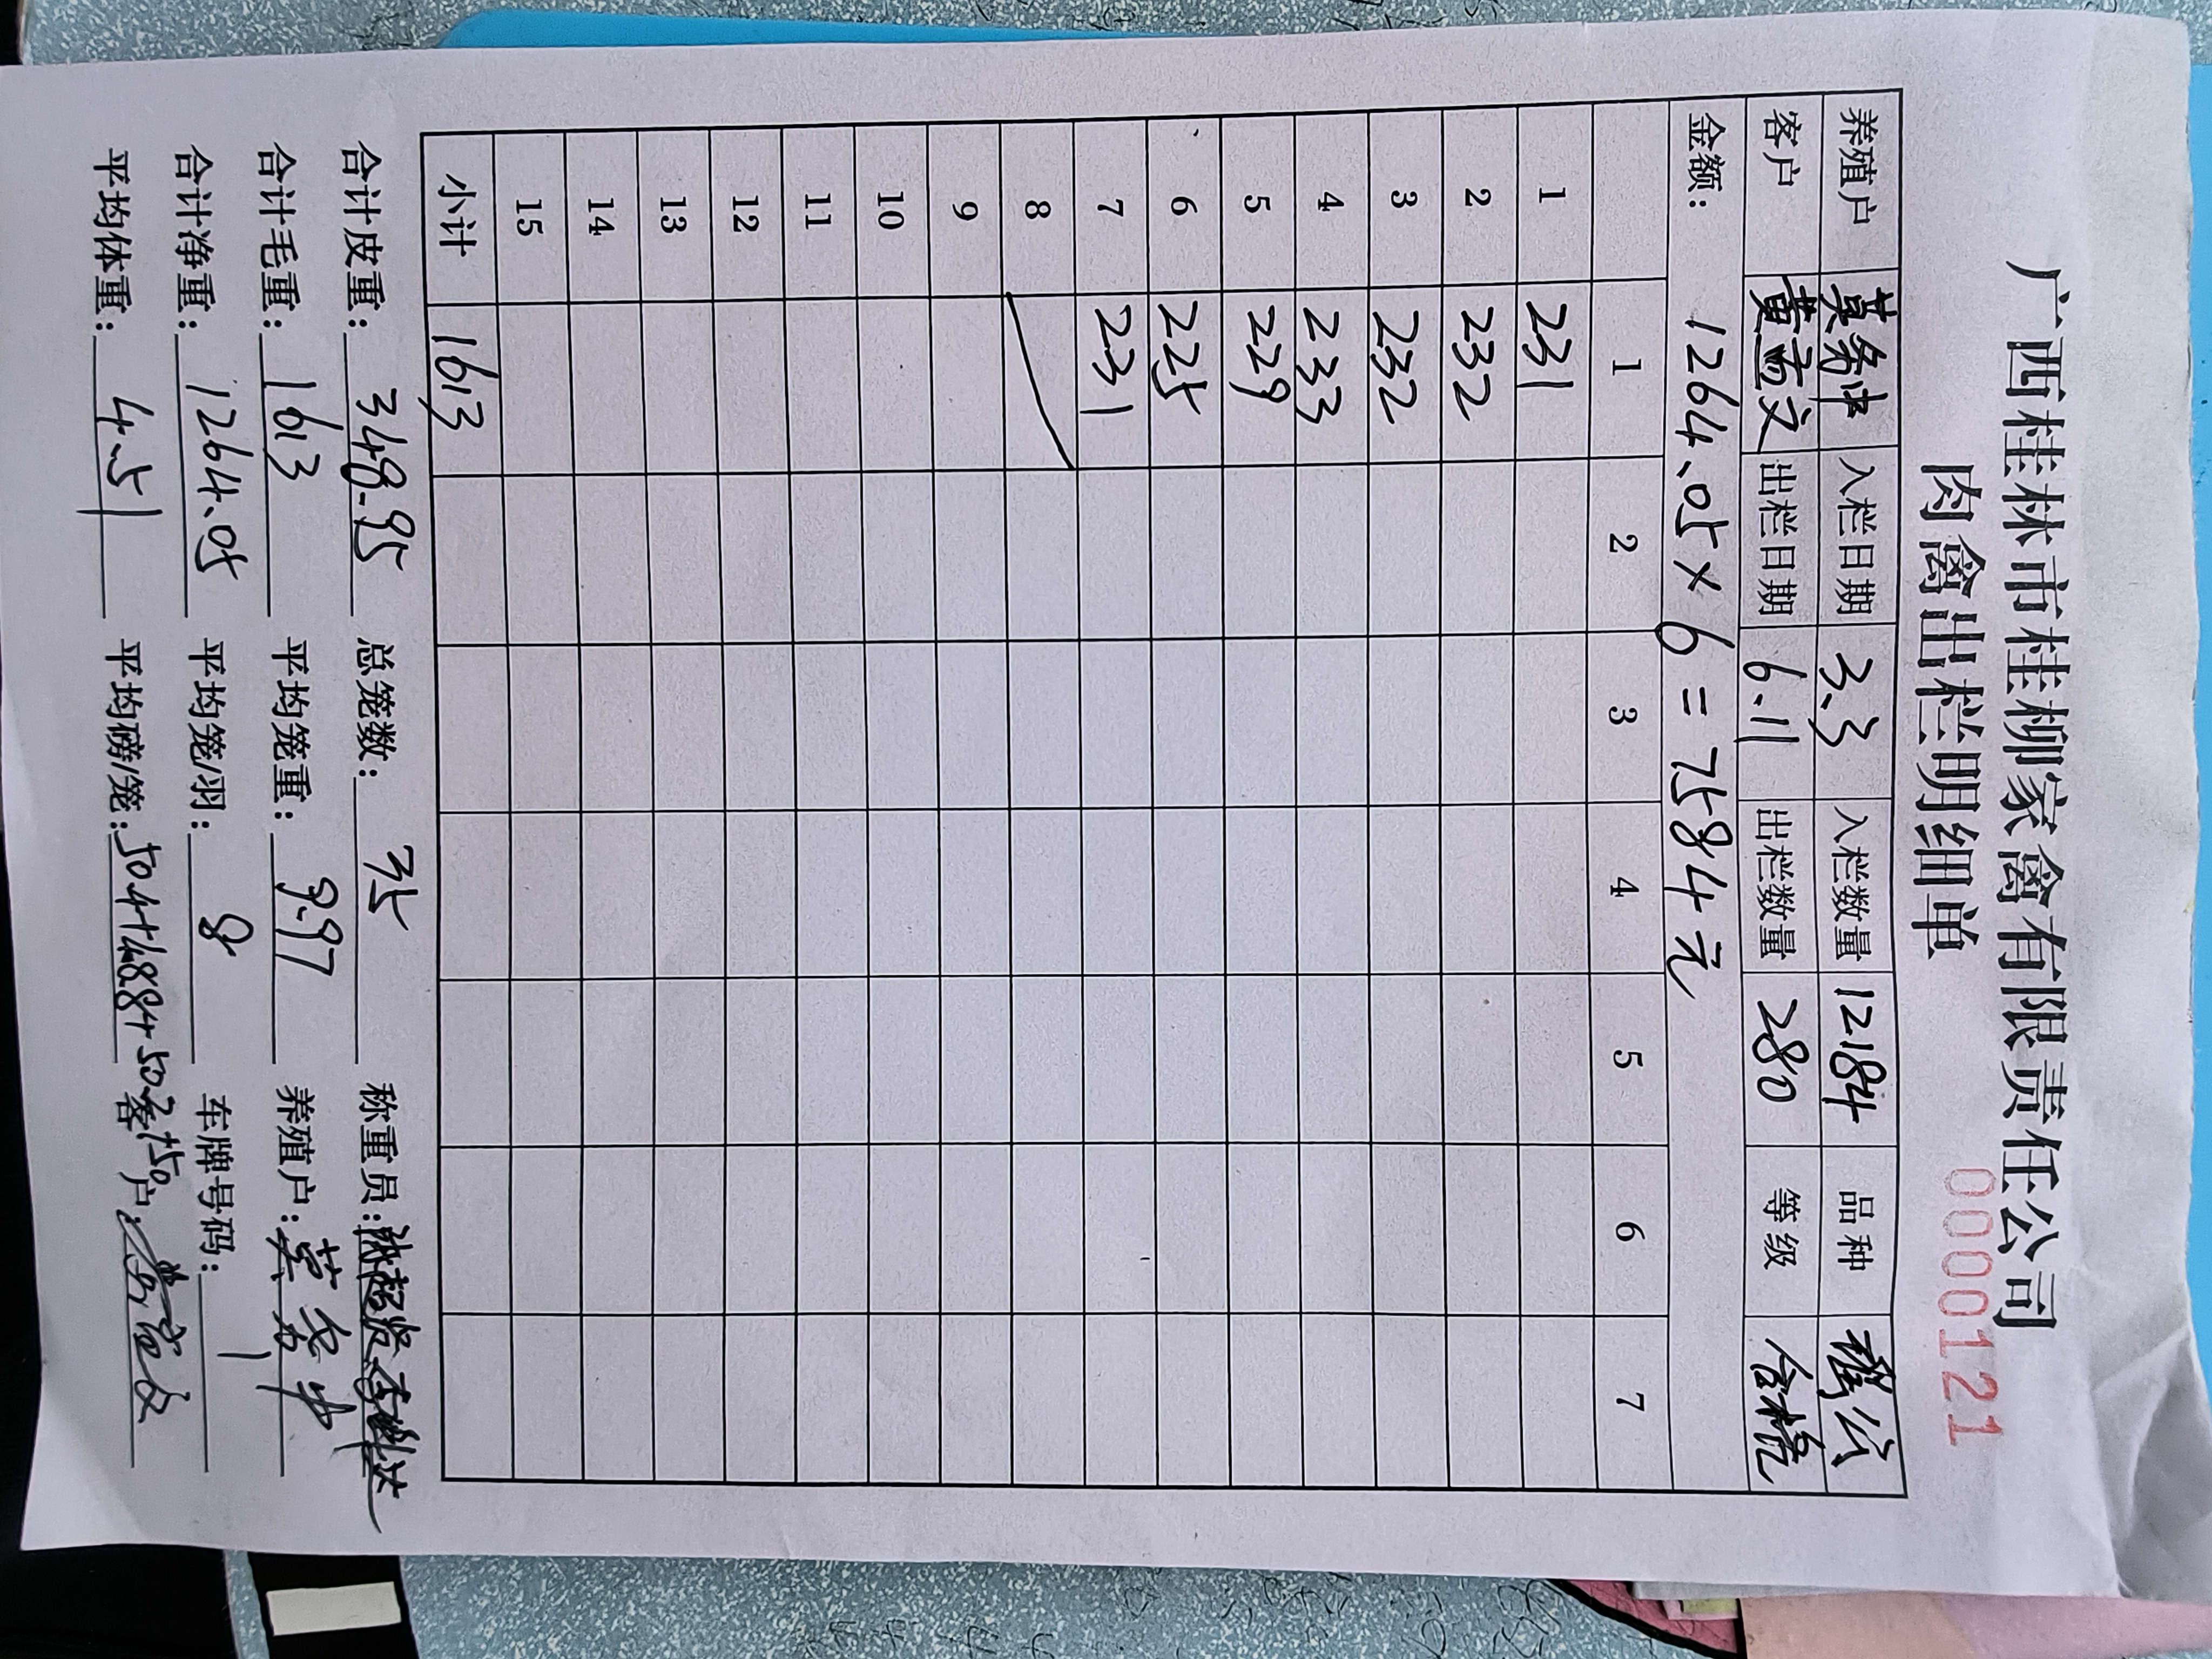 广西桂林市桂柳家禽有限责任公司
肉禽出栏明细单
0000121
养殖户 莫务中 入栏日期 3.3 入栏数量 12184 品种 公
客户 黄富文 出栏日期 6.11 出栏数量 280 等级 合格
金额： 1264.05×6=7584元
1 2 3 4 5 6 7
1 231
2 232
3 232
4 233
5 229
6 225
7 231
8
9
10
11
12
13
14
15
小计 1613
合计皮重： 348.95 总笼数： 35 称重员：
合计毛重： 1613 平均笼重： 9.97 养殖户： 莫务中
合计净重： 1264.05 平均笼/羽： 8 车牌号码：
平均体重： 4.51 平均磅/笼： 50.4+48.84+50.2+50 客户